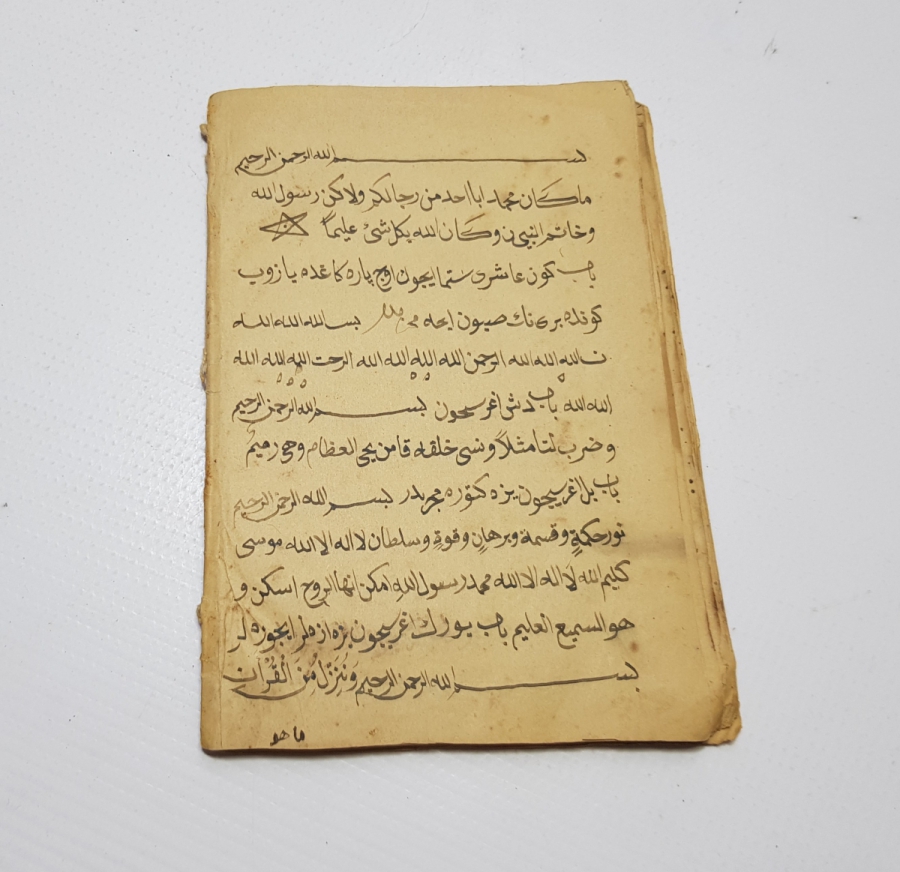 بسم الله الرحمن الرحيم
ما كان محمد ابا احد من رجالكم ولاكن رسول الله
وخاتم النبين وكان الله بكل شئ عليماً
باب كون عاشرى ستما ايجون اوچ پاره كاغده يازوب
كونده برى نك صيون ايچه بسم الله الله الله
ن الله الله الله الرحمن الله الله الله الله الرحت الله الله الله
الله الله باب دش اغريسيجون بسم الله الرحمن الرحيم
وضرب لنا مثلاً ونسى خلقه قا من يحى العظام وهى رميم
باب بل اغريسيجون يزه كتوره مجربدر بسم الله الرحمن الرحيم
نور حكمةٍ وقسمة وبرهانٍ وقوةٍ وسلطان لا اله الا الله موسى
كليم الله لَا اله الا الله محمد رسول اللهِ امكن انها الروح اسكن و
هو السميع العليم باب يورك اغريسيجون يزه ازه لر ايچوره لر
بسم الله الرحمن الرحيم وَنُنَزِلُ مُنَ الْقُرْآنِ
ما هو